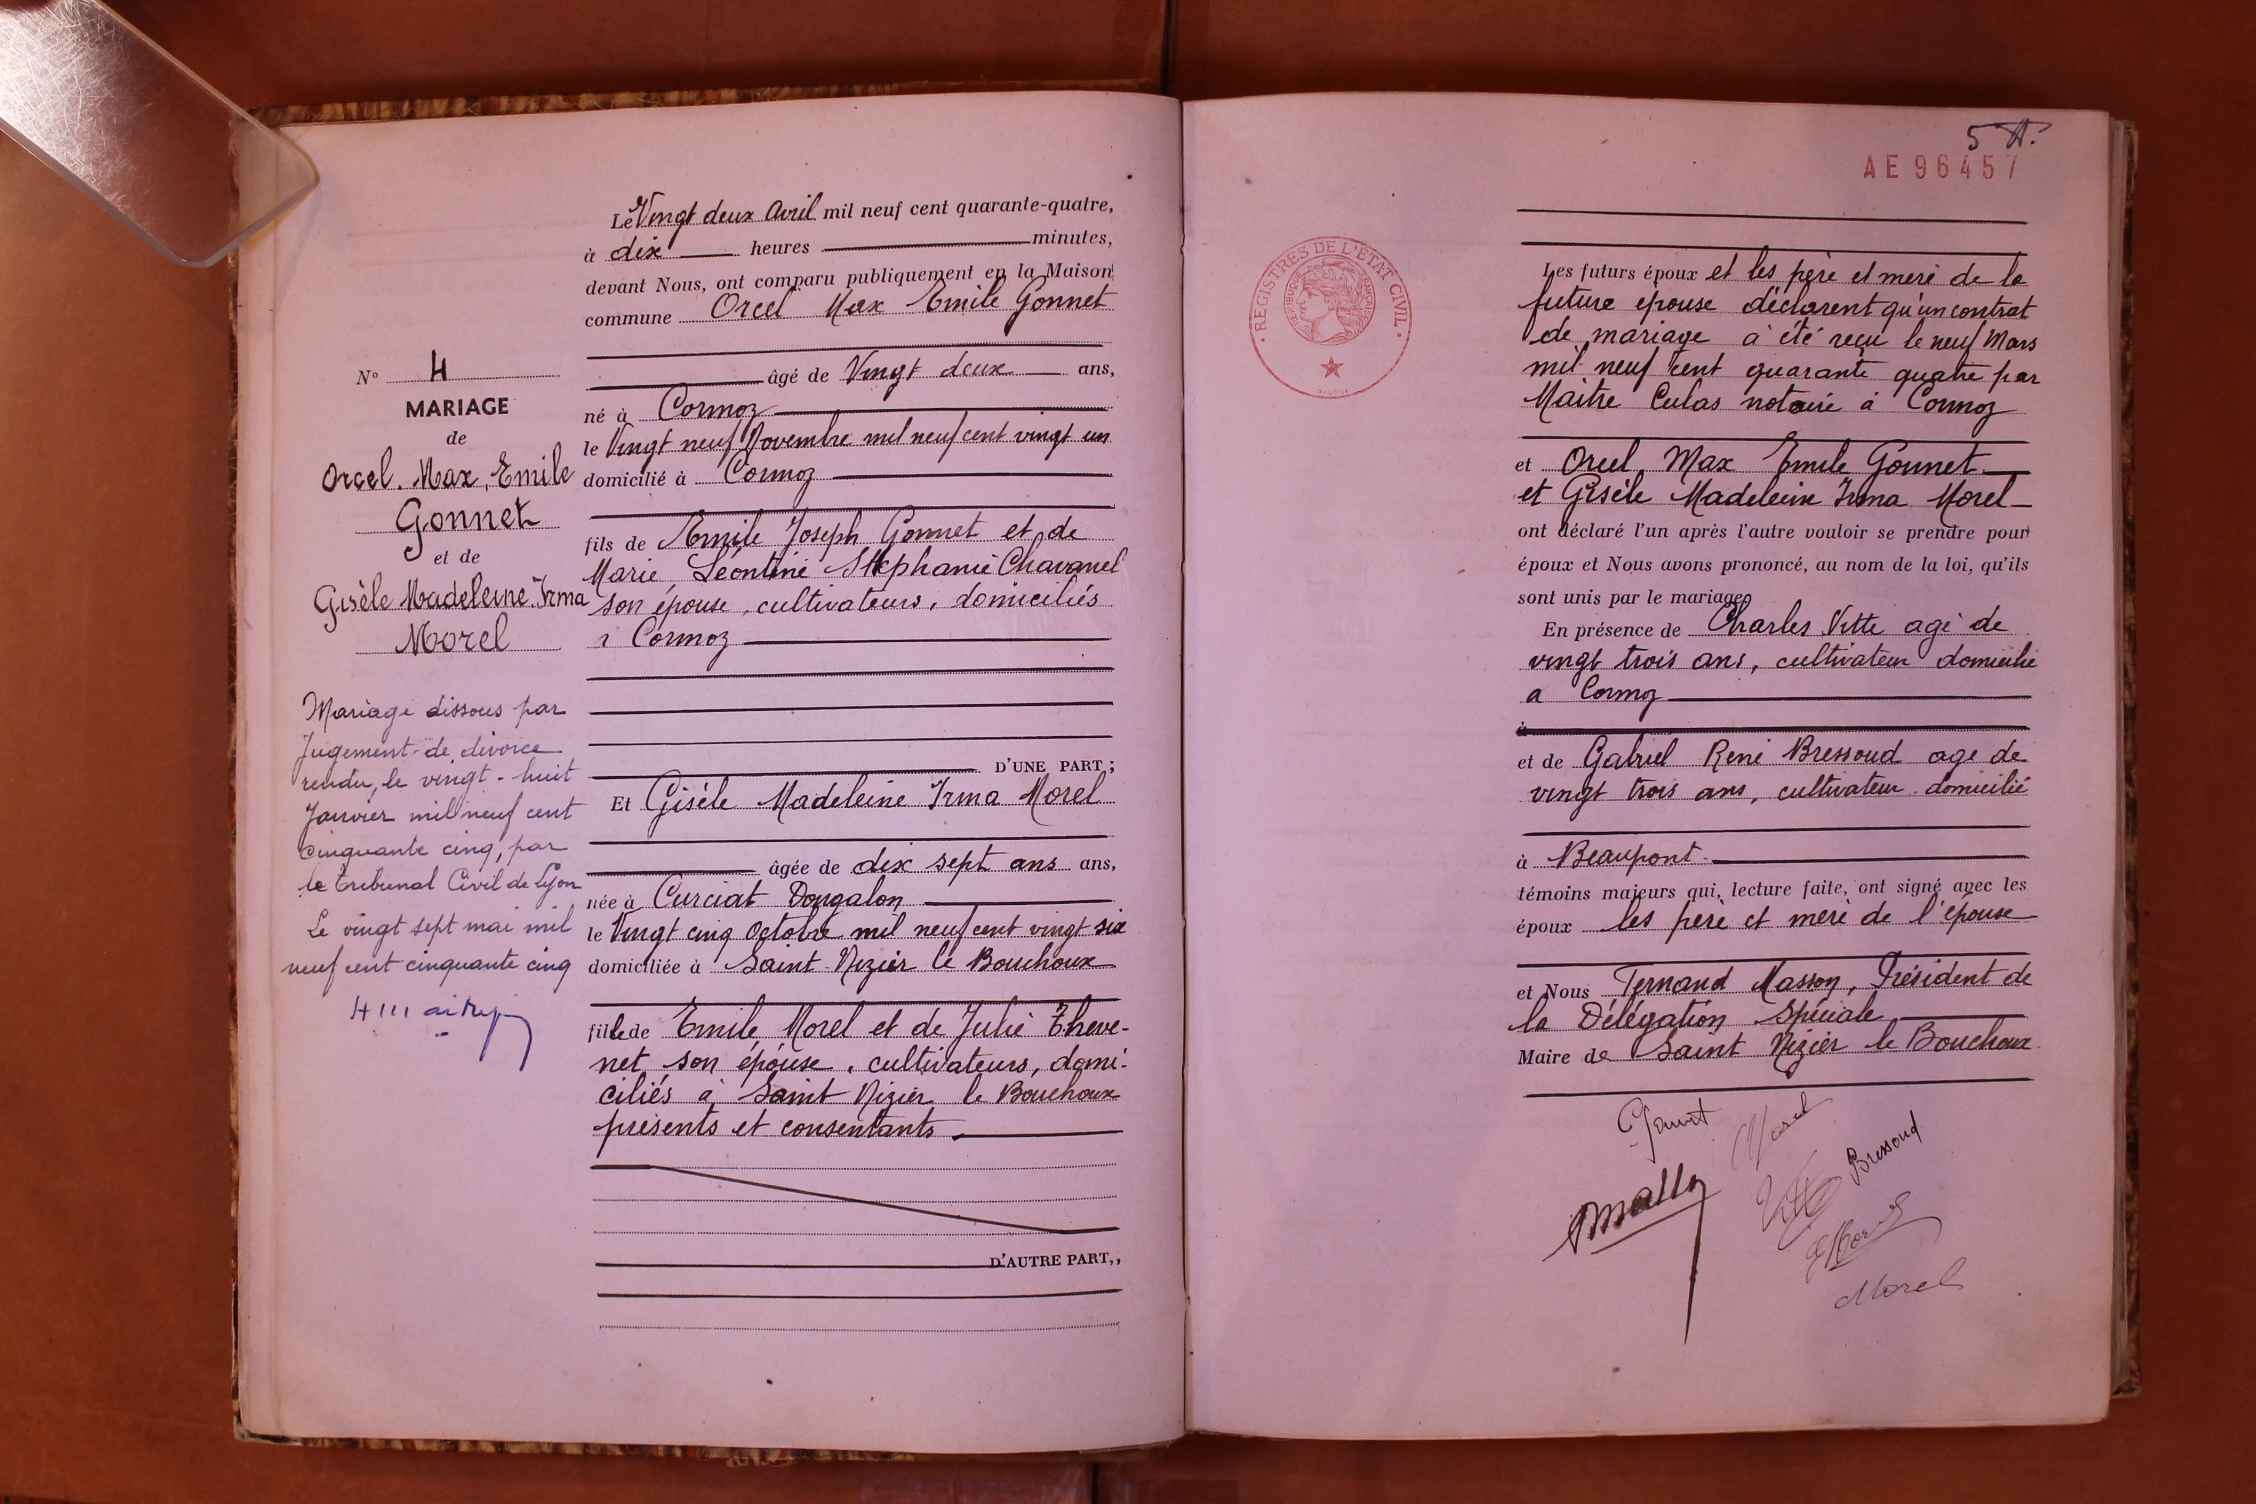 Le Vingt deux Avril mil neuf cent quarante-quatre,
à dix heures minutes,
devant Nous, ont comparu publiquement en la Maison
commune Orcel Max Emile Gonnet
âgé de Vingt deux ans,
né à Cormoz
le Vingt neuf Novembre mil neuf cent vingt un
domicilié à Cormoz
fils de Emile Joseph Gonnet et de
Marie Léontine Stéphanie Chavanel
son épouse, cultivateurs, domiciliés
à Cormoz
D'UNE PART;
Et Gisèle Madeleine Irma Morel
âgée de dix sept ans ans,
née à Curciat Dongalon
le Vingt cinq Octobre mil neuf cent vingt six
domiciliée à Saint Nizier le Bouchoux
fille de Emile Morel et de Julie Theve-
net son épouse, cultivateurs, domi-
ciliés à Saint Nizier le Bouchoux
présents et consentants.
D'AUTRE PART,,
N° 4
MARIAGE
de
Orcel. Max, Emile
Gonnet
et de
Gisèle Madeleine Irma
Morel
Mariage dissous par
Jugement de divorce
rendu, le vingt-huit
Janvier mil neuf cent
cinquante cinq, par
le tribunal Civil de Lyon
Le vingt sept mai mil
neuf cent cinquante cinq
5
AE 96457
REGISTRES DE L'ÉTAT CIVIL
Les futurs époux et les père et mère de la
future épouse déclarent qu'un contrat
de mariage a été reçu le neuf Mars
mil neuf cent quarante quatre par
Maître Culas notaire à Cormoz
et Orcel Max Emile Gonnet
et Gisèle Madeleine Irma Morel
ont déclaré l'un après l'autre vouloir se prendre pour
époux et Nous avons prononcé, au nom de la loi, qu'ils
sont unis par le mariage
En présence de Charles Vitte agé de
vingt trois ans, cultivateur domicilié
a Cormoz
à
et de Gabriel René Bressoud age de
vingt trois ans, cultivateur domicilié
à Beaupont
témoins majeurs qui, lecture faite, ont signé avec les
époux les père et mère de l'épouse
et Nous Fernand Masson, Président de
la Délégation Spéciale
Maire de Saint Nizier le Bouchoux
Morel
Bressoud
Morel